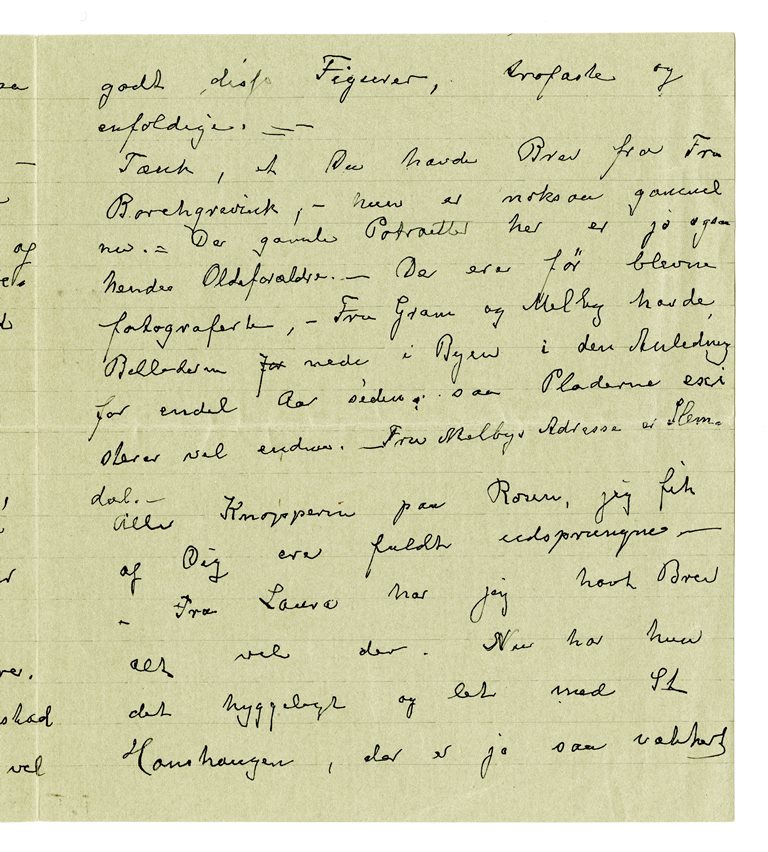 godt disse Figurer, trofaste og
enfoldige. —
Tænk, at Du havde Brev fra Fru
Borchgrevink, – hun er noksaa gammel
nu. – De gamle Potrætter her er jo ogsaa
hendes Oldeforældre. – De ere før blevne
og
fotograferte, – Fru Gram og Melby havde
Billederne for nede i Byen i den Anledning
for endel Aar siden; saa Pladerne exi
sterer vel endnu. – Fru Melbys Adresse er Slem-
dal. –
Alle Knopperne paa Rosen, jeg fik
af Dig ere fuldt udsprungne –
– Fra Laura har jeg havt Brev
alt vel der. Nu har hun
det hyggeligt og let med St
Hanshaugen, der er jo saa vakkert
vel